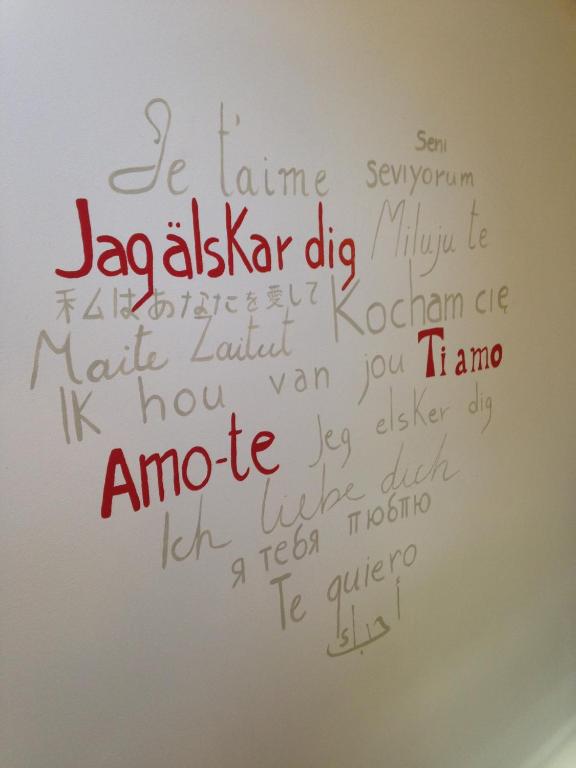 Je t'aime
Seni
seviyorum
Jag älskar dig
Miluju te
私はあなたを愛して
Kocham cię
Maite Zaitut
Ik hou van jou
Ti amo
Amo-te
Jeg elsker dig
Ich liebe dich
я тебя пюбпю
Te quiero